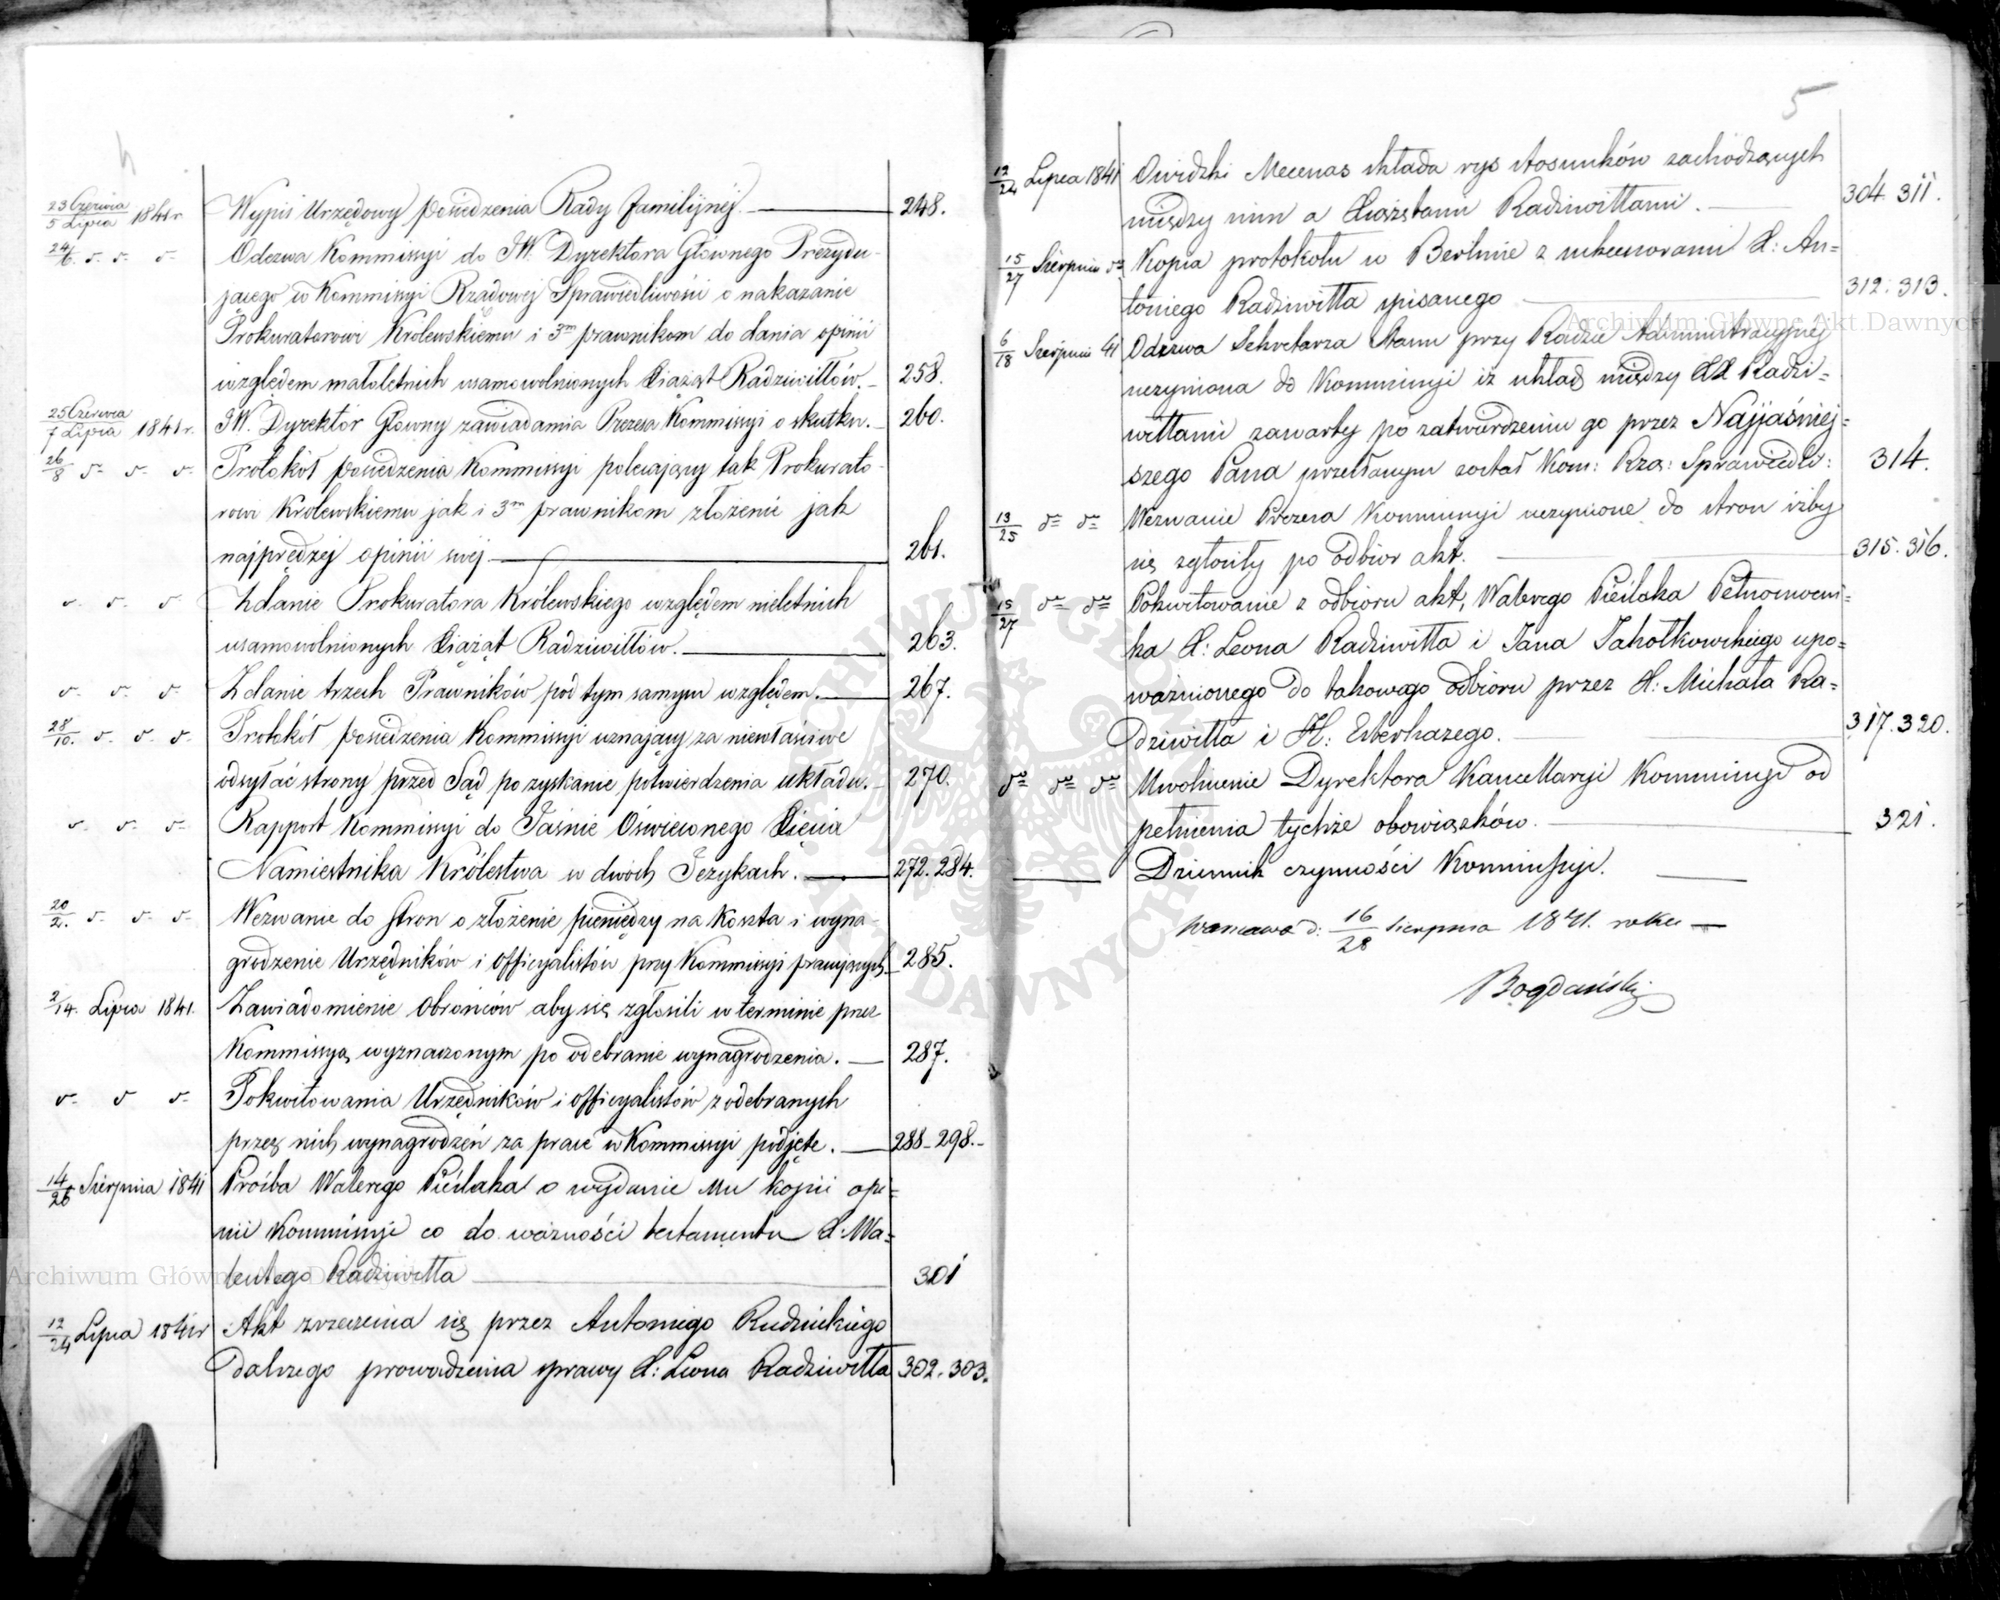 4
23 Czerwia
5 Lipca 1841 r Wypis Urzędowy posiedzenia Rady familijnej. 248.
24/6. d. d. d. Odezwa Kommissyi do JW. Dyrektora Głównego Prezydu-
jącego w Kommissyi Rządowej Sprawiedliwości o nakazanie
Prokuratorowi Królewskiemu i 3m prawnikom do dania opinii
względem małoletnich usamowolnionych Książąt Radziwiłłów. 258.
25 Czerwca
7 Lipca 1841 r. JW. Dyrektór Główny zawiadamia Prezesa Kommissyi o skutku. 260.
26/8 d. d. d. Protokół posiedzenia Kommissyi polecający tak Prokurato-
rowi Królewskiemu jak i 3m prawnikom złożenie jak
najprędzej opinii swej. 261.
d. d. d. Zdanie Prokuratora Królewskiego względem nieletnich
usamowolnionych Książąt Radziwiłłów. 263.
d. d. d. Zdanie trzech Prawników pod tym samym względem. 267.
28/10. d. d. d. Protokół posiedzenia Kommissyi uznający za niewłaściwe
odsyłać strony przed Sąd po zyskanie potwierdzenia układu. 270.
d. d. d. Rapport Kommissyi do Jaśnie Oświeconego Księcia
Namiestnika Królestwa w dwóch Językach. 272. 284.
20/2. d. d. d. Wezwanie do Stron o złożenie pieniędzy na koszta i wyna-
grodzenie Urzędników i officyalistów przy Kommissyi pracujących 285.
2/14. Lipca 1841. Zawiadomienie Obrońców aby się zgłosili w terminie przez
Kommissyą wyznaczonym po odebranie wynagrodzenia. 287.
d. d d. Pokwitowania Urzędników i officyalistów z odebranych
przez nich wynagrodzeń za prace w Kommissyi podjęte. 288-298.-
14/26 Sierpnia 1841 Prośba Walerego Pieślaka o wydanie Mu kopii opi=
nii Kommissyi co do ważności testamentu X: Wa=
lentego Radziwiłła 301
12/24 Lipca 1841 r Akt zrzeczenia się przez Antoniego Rudnickiego
dalszego prowadzenia sprawy X: Leona Radziwiłła 302. 303.
5
12/24 Lipca 1841 Owidzki Mecenas składa rys stosunków zachodzących
między nim a Xiążętami Radziwiłłami. 304. 311.
15/27 Sierpnia do Kopia protokołu w Berlinie z sukcessorami X: An=
toniego Radziwiłła spisanego 312. 313.
6/18 Sierpnia 41 Odezwa Sekretarza Stanu przy Radzie Administracyjnej
uczyniona do Kommissyi iż układ między XX Radzi=
wiłłami zawarty po zatwierdzeniu go przez Najjaśniej=
szego Pana przesłanym został Kom: Rzą: Sprawiedli: 314.
13/25 do do Wezwanie Prezesa Kommissyi uczynione do stron iżby
się zgłosiły po odbior akt. 315. 316.
15/27 do do Pokwitowanie z odbioru akt, Walerego Pieślaka Pełnomocni=
ka X: Leona Radziwiłła i Jana Jakołkowskiego upo=
ważnionego do takowego odbioru przez X: Michała Ra=
dziwiłła i X: Esterhazego. 317. 320.
do do do Uwolnienie Dyrektora Kancellaryi Kommissyi od
pełnienia tychże obowiązków. 321.
Dziennik czynności Kommissyi.
Warszawa d: 16/28 Sierpnia 1841. roku
Bogdański
Archiwum Główne Akt Dawnych
ARCHIWUM GŁÓWNE AKT DAWNYCH
Archiwum Główne Akt Dawnych